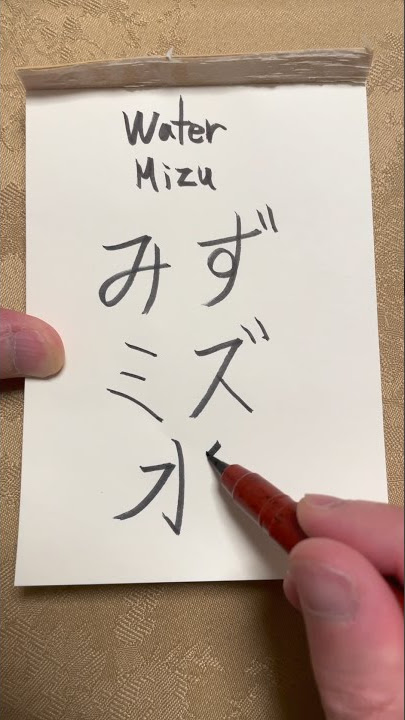 Water
Mizu
みず
ミズ
水